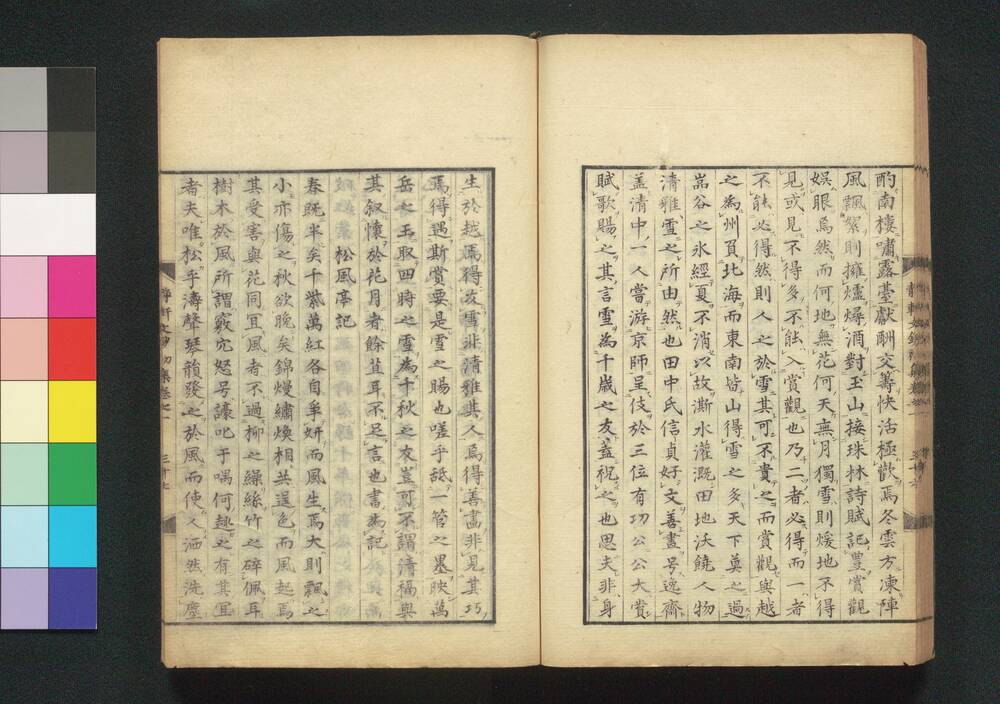 酌南棲嘯露臺獻酬交籌快活極歡焉冬雲方凍陣
風飄絮則擁爐燖酒對玉山接珠林詩賦記豊賞觀
娯眼焉然而何地無花何天無月獨雪則煖地不得
見或見不得多不能入賞觀也乃二者必得而一者
不能必得然則人之於雪其可不貴之而賞觀與越
之為州負北海而東南皆山得雪之多天下莫之過
嵓谷之氷經夏不消以故澌水灌漑田地沃饒人物
清雅雪之所由然也田中氏信貞好文善畫号逸齋
盖清中一人嘗游京師呈伎於三位有功公公大賞
賦歌賜之其言雪為千歳之友盖祝之也思夫非身
生於越焉得友雪非清雅其人焉得善畫非見其巧
焉得遇斯賞要是雪之賜也嗟乎舐一管之墨映萬
岳之玉取四時之雪為千秋之友豈可不謂清福與
其叙懷於花月者餘韮耳不足言也書為記
松風亭記
春既半矣千紫萬紅各自爭妍而風生焉大則飄之
小亦傷之秋欲晚矣錦熳繡煥相共逞色而風起焉
其受害與花同冝風者不過柳之繰絲竹之碎佩耳
樹木於風所謂竅宂怒号謔叱于喁何趣之有其冝
者夫唯松乎濤聲琴韻發之於風而使人洒然洗塵
三十七